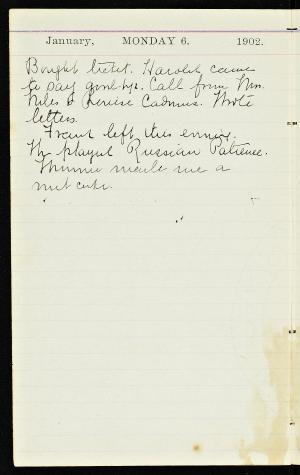 January, MONDAY 6. 1902.
Bought ticket. Harold came
to say good-bye. Call from Mrs.
Niles & Denise Cadmus. Wrote
letters.
Frank left this evning.
We played Russian Patience.
Minnie made me a
nut cake.